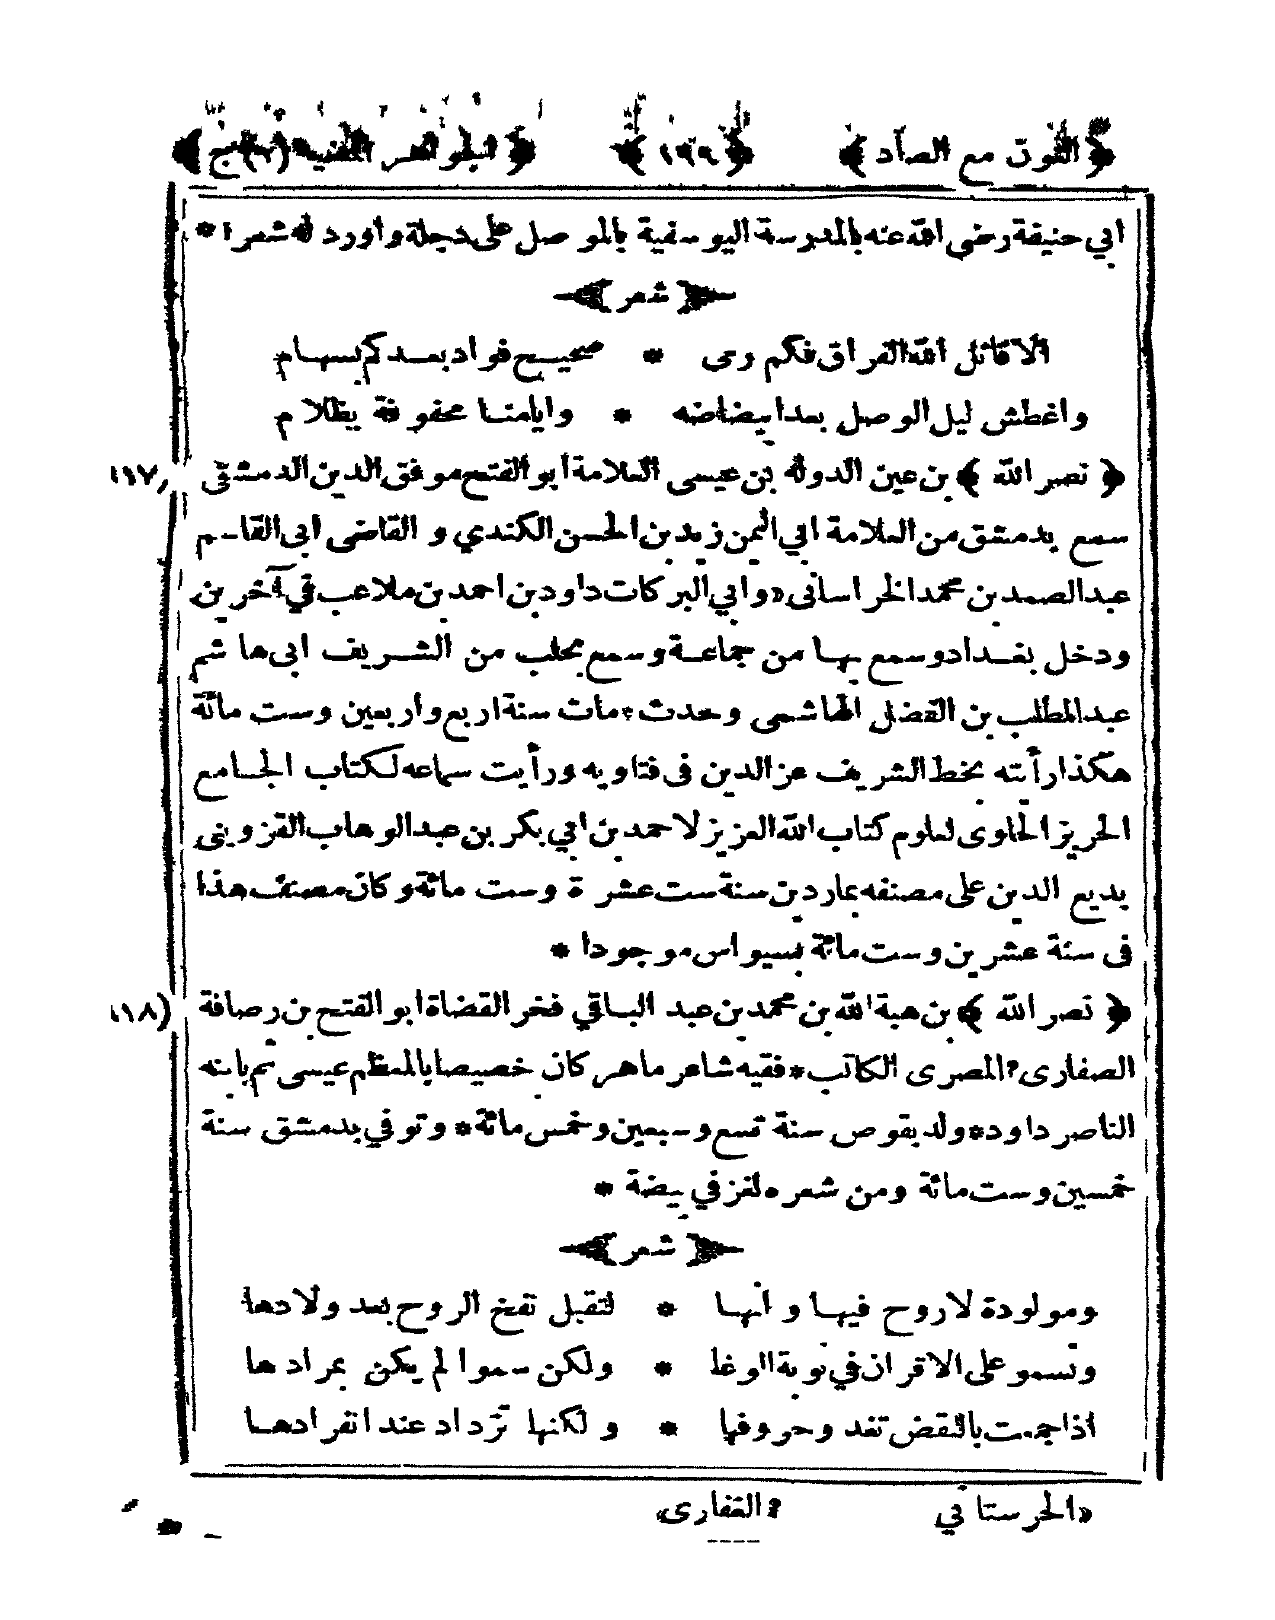 ﴿ النون مع الصاد ﴾ ﴿ ١٩٩ ﴾ ﴿ الجواهر المضيه (٢) ج ﴾
ابي حنيفة رضى الله عنه بالمدرسة اليوسفية بالموصل على دجلة واورد له شعرا *
﴿ شعر ﴾
الا قاتل الله الفراق فكم رمى * صحيح فواد بعدكم بسهام
واغطش ليل الوصل بعد ابيضاضه * وايامنا محفوفة بظلام
﴿ نصر الله ﴾ بن عين الدولة بن عيسى العلامة ابو الفتح موفق الدين الدمشقي (١١٧
سمع بدمشق من العلامة ابي اليمن زيد بن الحسن الكندي و القاضى ابى القاسم
عبدالصمد بن محمد الخراسانى» وابي البركات داود بن احمد بن ملاعب في آخرين
ودخل بغداد وسمع بها من جماعة وسمع بحلب من الشريف ابى هاشم
عبدالمطلب بن الفضل الهاشمى وحدث؛ مات سنة اربع واربعين وست مائة
هكذا رأيته بخط الشريف عز الدين فى فتاويه ورأيت سماعه لكتاب الجامع
الحريز الحاوى لعلوم كتاب الله العزيز لاحمد بن ابي بكر بن عبدالوهاب القزوينى
بديع الدين على مصنفه بماردين سنة ست عشرة وست مائة وكان مصنف هذا
فى سنة عشرين وست مائة بسيواس موجودا *
﴿ نصر الله ﴾ بن هبة الله بن محمد بن عبد الباقي فخر القضاة ابو الفتح بن رصافة (١١٨
الصفارى؟ المصرى الكاتب * فقيه شاعر ماهر كان خصيصا بالمعظم عيسى ثم بابنه
الناصر داود * ولد بقوص سنة تسع وسبعين وخمس مائة * وتوفي بدمشق سنة
خمسين وست مائة ومن شعره لغز في بيضة *
﴿ شعر ﴾
ومولودة لا روح فيها و انها * لتقبل نفخ الروح بعد ولادها
وتسمو على الاقران في نوبة الوغا * ولكن سموا لم يكن بمرادها
اذا جمعت بالنقض تغد وحروفها * و لكنها تزداد عند انفرادها
«الحرستاني ؟ الغفارى»